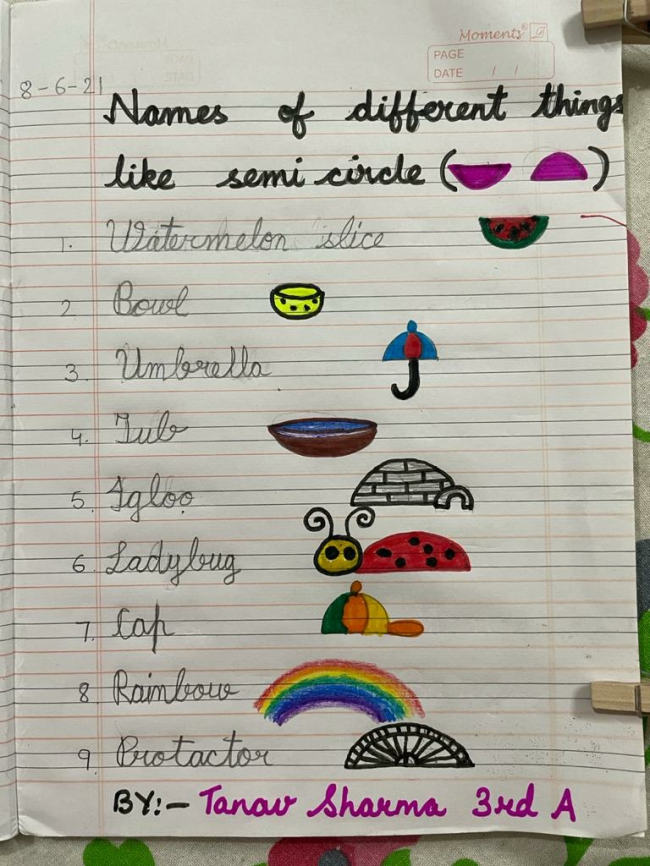 Moments
PAGE
DATE / /
8-6-21
Names of different things
like semi circle ( )
1. Watermelon slice
2 Bowl
3. Umbrella
4. Tub
5. Igloo
6. Ladybug
7. Cap
8. Rainbow
9. Protactor
BY:- Tanav Sharma 3rd A